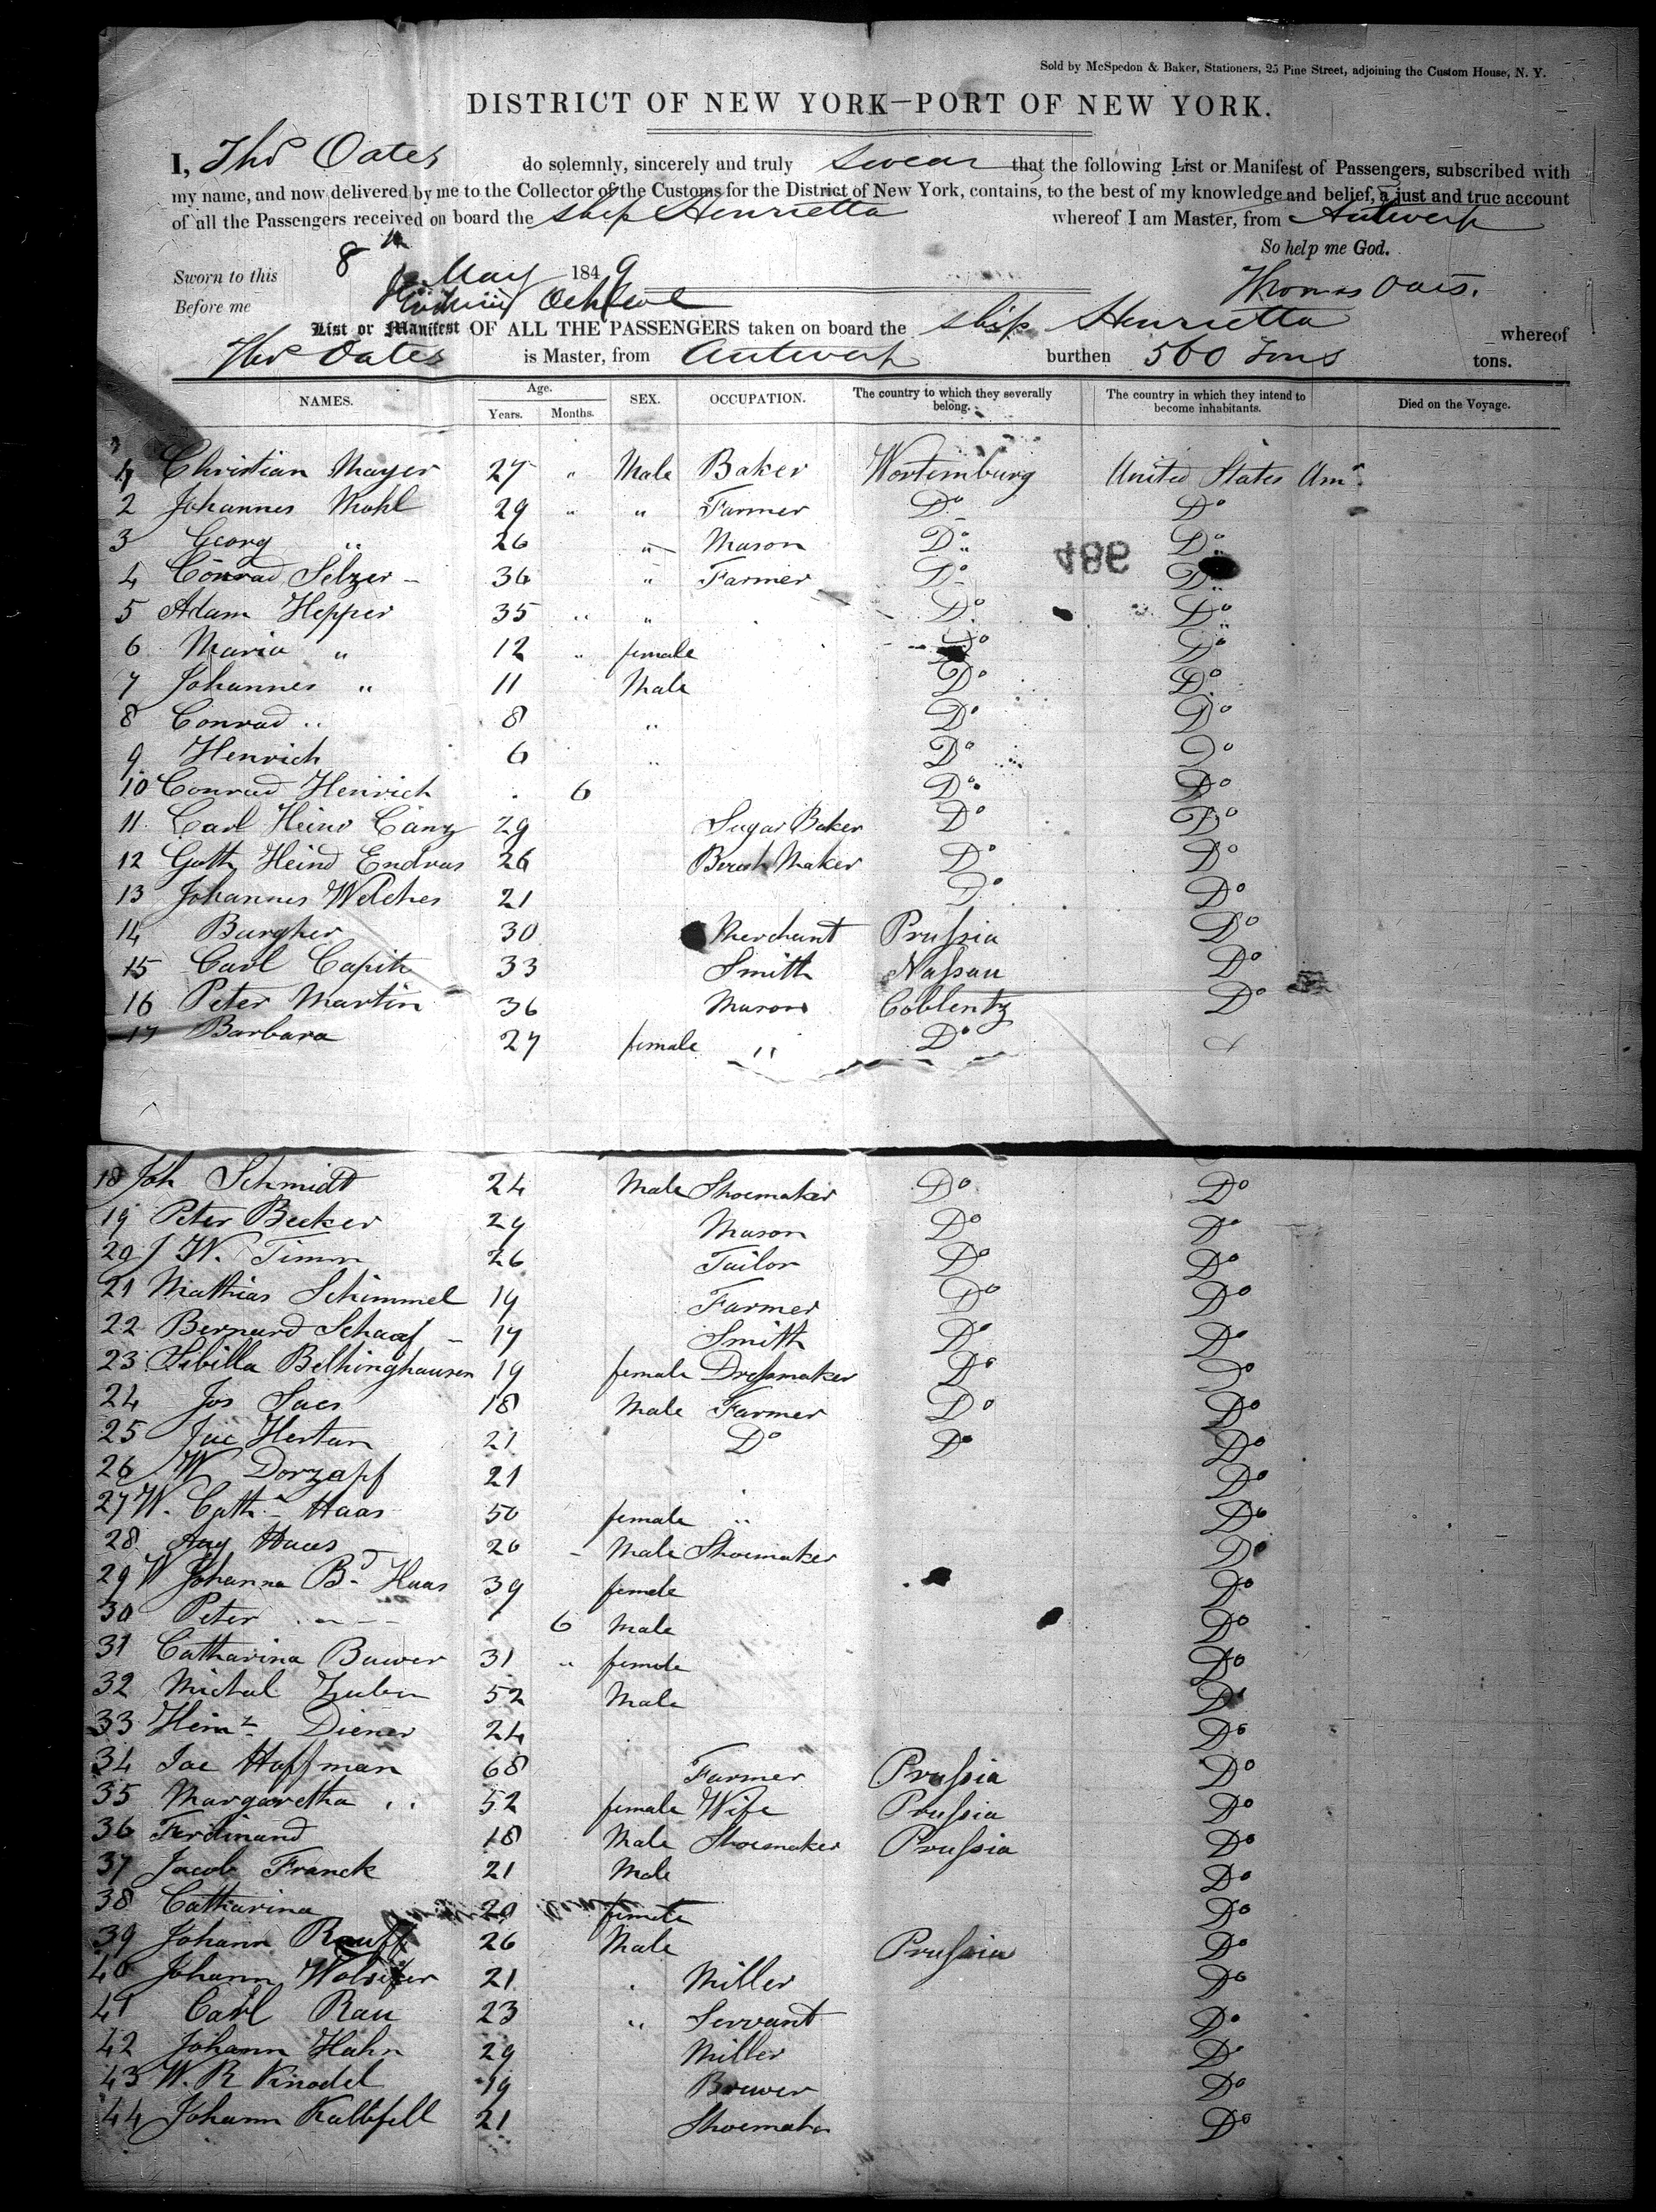 Sold by McSpedon & Baker, Stationers, 25 Pine Street, adjoining the Custom House, N. Y.
DISTRICT OF NEW YORK—PORT OF NEW YORK.
I, Thos Oates do solemnly, sincerely and truly swear that the following List or Manifest of Passengers, subscribed with
my name, and now delivered by me to the Collector of the Customs for the District of New York, contains, to the best of my knowledge and belief, a just and true account
of all the Passengers received on board the ship Henrietta whereof I am Master, from Antwerp
So help me God.
Sworn to this 8th May 1849
Thomas Oates.
Before me
List or Manifest OF ALL THE PASSENGERS taken on board the ship Henrietta whereof
Thos Oates is Master, from Antwerp burthen 560 Tons tons.
NAMES. Age. Years. Months. SEX. OCCUPATION. The country to which they severally belong. The country in which they intend to become inhabitants. Died on the Voyage.
1 Christian Mayer 27 " Male Baker Wortemburg United States Am
2 Johannes Mohl 29 " " Farmer Do Do
3 Georg " 26 " Mason Do Do
486
4 Conrad Selzer 36 " Farmer Do Do
5 Adam Hepper 35 " " Do Do
6 Maria " 12 " female Do Do
7 Johannes " 11 Male Do Do
8 Conrad " 8 " Do Do
9 Henrich 6 " Do Do
10 Conrad Heinrich 6 Do Do
11 Carl Heinr Canz 29 Sugar Baker Do Do
12 Gotth Heinr Endras 26 Maker Do Do
13 Johannes Welches 21 Do Do
14 Burgher 30 Merchant Prussia Do
15 Carl Capito 33 Smith Nassau Do
16 Peter Martin 36 Mason Coblentz Do
17 Barbara 27 female " Do
18 Joh Schmidt 24 Male Shoemaker Do Do
19 Peter Becker 29 Mason Do Do
20 J W. Timm 26 Tailor Do Do
21 Mathias Schimmel 19 Farmer Do Do
22 Bernard Schaaf 17 Smith Do Do
23 Sibilla Bellinghausen 19 female Dressmaker Do Do
24 Jos Saes 18 Male Farmer Do Do
25 Jac Hertan 21 Do Do Do
26 W Dorzapf 21 Do
27 W. Cath Haas 50 female " Do
28 Aug Haas 20 Male Shoemaker Do
29 W Johanna Bd Haas 39 female Do
30 Peter 6 Male Do
31 Catharina Bawer 31 " female Do
32 Michal Zuber 52 Male Do
33 Heinr Diener 24 Do
34 Jac Hoffman 68 Farmer Prussia Do
35 Margaretha " 52 female Wife Prussia Do
36 Ferdinand 18 Male Shoemaker Prussia Do
37 Jacob Franck 21 Male Do
38 Catharina 20 female Do
39 Johann Rauff 26 Male Prussia Do
40 Johann 21 Miller Do
41 Carl Rau 23 " Servant Do
42 Johann Hahn 29 Miller Do
43 W. R Knodel 19 Brewer Do
44 Johann Kalbfell 21 Shoemaker Do